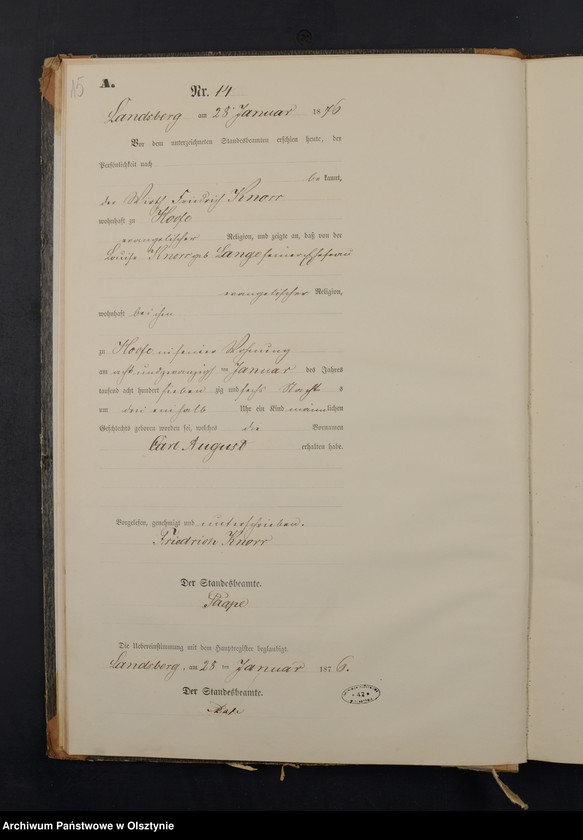 15
A.
Nr. 14
Landsberg am 28 Januar 1876
Vor dem unterzeichneten Standesbeamten erschien heute, der
Persönlichkeit nach
bekannt,
der Wirth Friedrich Knorr
wohnhaft zu Hoofe
evangelischer Religion, und zeigte an, daß von der
Louise Knorr geb Lange seiner Ehefrau
evangelischer Religion,
wohnhaft bei ihm
zu Hoofe in seiner Wohnung
am acht und zwanzigsten Januar des Jahres
tausend acht hundert sieben zig und sechs Nachts
um drei ein halb Uhr ein Kind männlichen
Geschlechts geboren worden sei, welches die Vornamen
Carl August erhalten habe.
Vorgelesen, genehmigt und unterschrieben.
Friedrich Knorr
Der Standesbeamte.
Die Uebereinstimmung mit dem Hauptregister beglaubigt.
Landsberg, am 28 ten Januar 1876.
Der Standesbeamte.
42
Archiwum Państwowe w Olsztynie